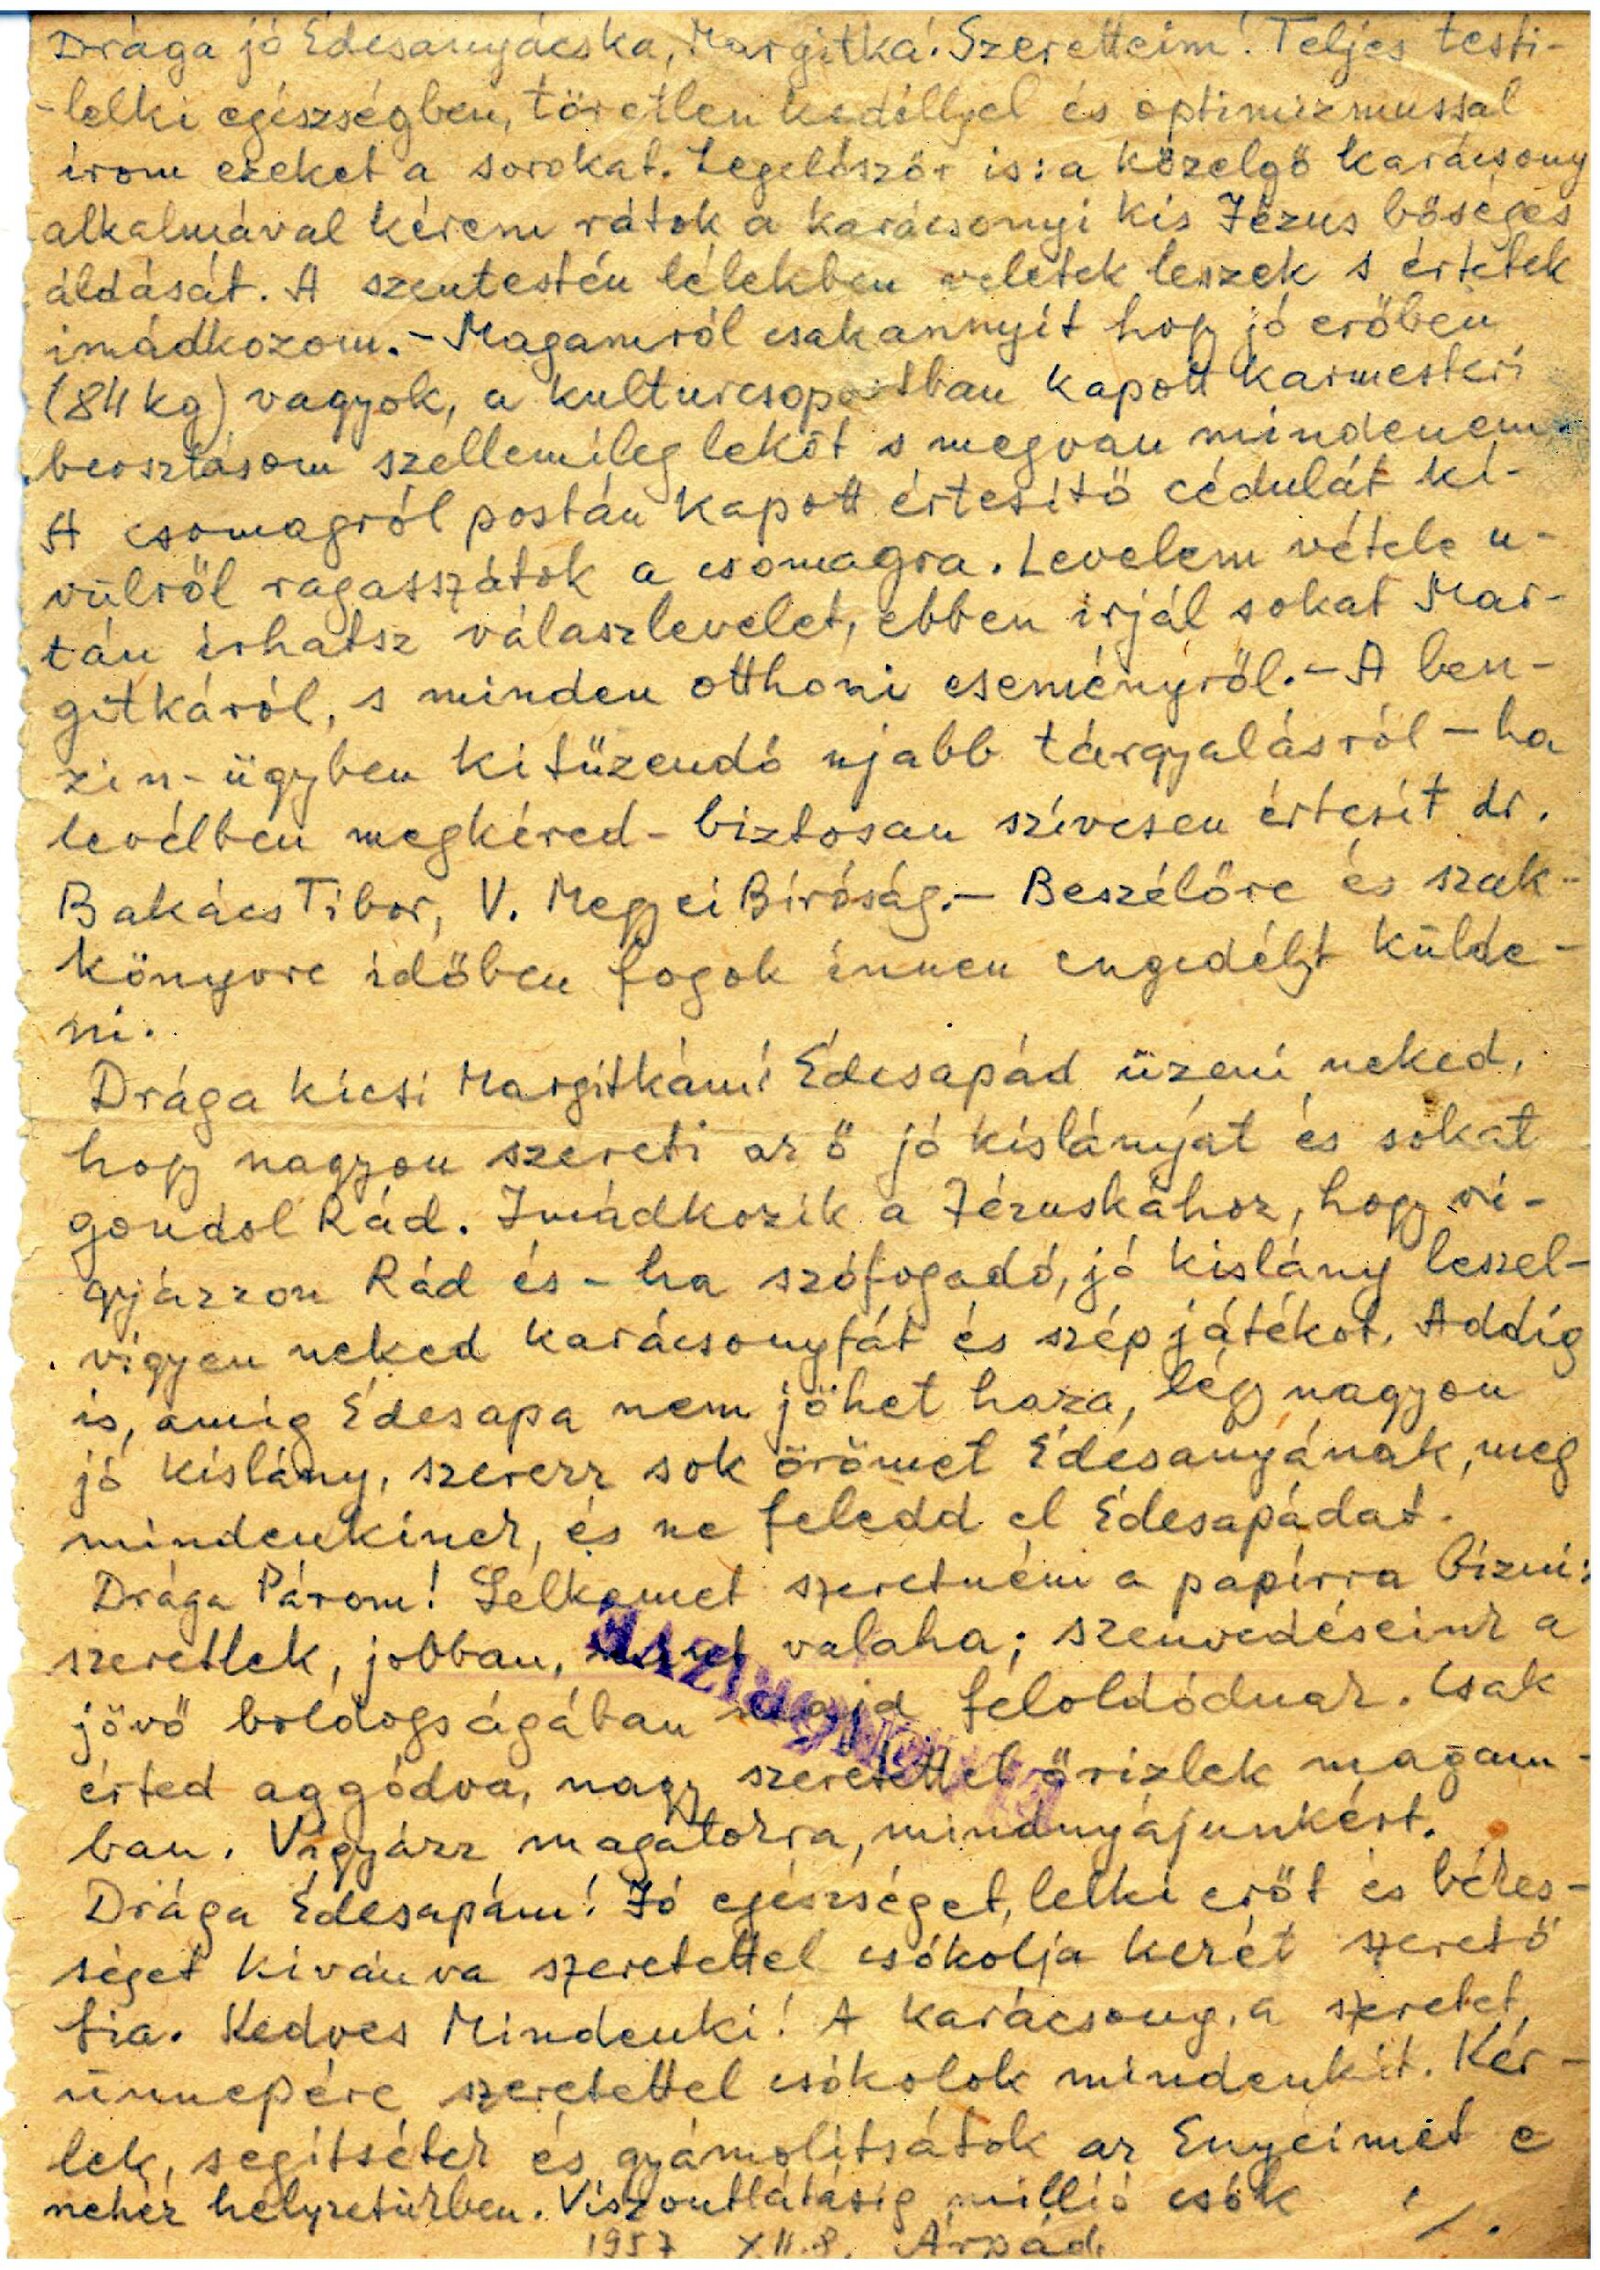 Drága jó Édesanyácska, Margitka! Szeretteim! Teljes testi-
-lelki egészségben, töretlen kedéllyel és optimizmussal
irom ezeket a sorokat. Legelőször is: a közelgő karácsony
alkalmával kérem rátok a karácsonyi kis Jézus bőséges
áldását. A szentestén lélekben veletek leszek s értetek
imádkozom. - Magamról csak annyit hogy jó erőben
(84 kg) vagyok, a kulturcsoportban kapott karmesteri
beosztásom szellemileg leköt s megvan mindenem.
A csomagról postán kapott értesítő cédulát ki-
vülről ragasszátok a csomagra. Levelem vétele u-
tán irhatsz válaszlevelet, ebben irjál sokat Mar-
gitkáról, s minden otthoni eseményről. - A ben-
zin-ügyben kitüzendő ujabb tárgyalásról - ha
levélben megkéred - biztosan szívesen értesít dr.
Bakács Tibor, V. Megyei Bíróság. - Beszélőre és szak-
könyvre időben fogok innen engedélyt külde-
ni.
Drága kicsi Margitkám! Édesapád üzeni neked,
hogy nagyon szereti az ő jó kislányát és sokat
gondol Rád. Imádkozik a Jézuskához, hogy vi-
gyázzon Rád és - ha szófogadó, jó kislány leszel -
vigyen neked karácsonyfát és szép játékot. Addig
is, amíg Édesapa nem jöhet haza, légy nagyon
jó kislány, szerezz sok örömet Édesanyának, meg
mindenkinek, és ne feledd el Édesapádat.
Drága Párom! Lelkemet szeretném a papírra bízni:
szeretlek, jobban, mint valaha; szenvedéseink a
jövő boldogságában majd feloldódnak. Csak
érted aggódva, nagy szeretettel őrizlek magam-
ban. Vigyázz magatokra, mindnyájunkért.
Drága Édesapám! Jó egészséget, lelki erőt és békes-
séget kívánva szeretettel csókolja kezét szerető
fia. Kedves Mindenki! A karácsony, a szeretet
ünnepére szeretettel csókolok mindenkit. Kér-
lek, segítsétek és gyámolítsátok az Enyéimet e
nehéz helyzetükben. Viszontlátásig millió csók
1957 XII. 8. Árpád.